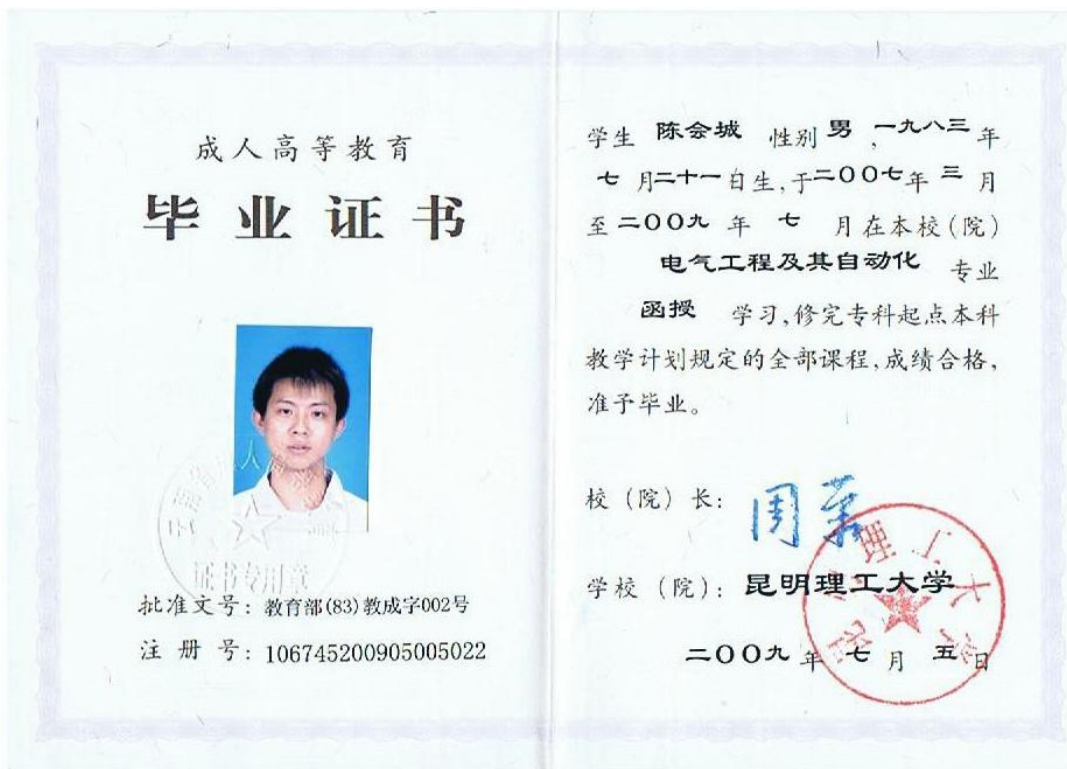 成人高等教育
毕业证书
证书专用章
批准文号：教育部(83)教成字002号
注 册 号：106745200905005022
学生 陈会城 性别 男，一九八三年
七月二十一日生，于二〇〇七年 三 月
至二〇〇九 年 七 月在本校（院）
电气工程及其自动化 专业
函授 学习，修完专科起点本科
教学计划规定的全部课程，成绩合格，
准予毕业。
校（院）长：
学校（院）：昆明理工大学
二〇〇九 年 七 月 五 日
昆明理工大学